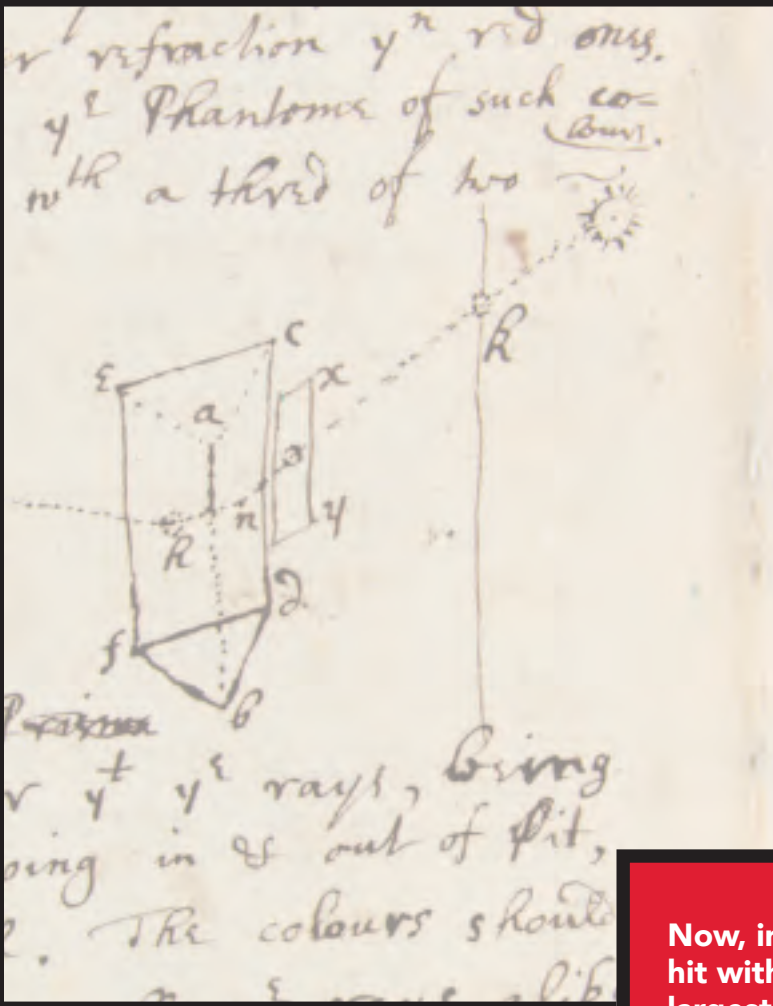 refraction yn red ones.
ye Phantome of such co=
lours.
wth a thred of two
k
c
ε x
a
n y
k
d
f
b
yt ye rays, being
oing in & out of it,
The colours should
Now, in
hit with